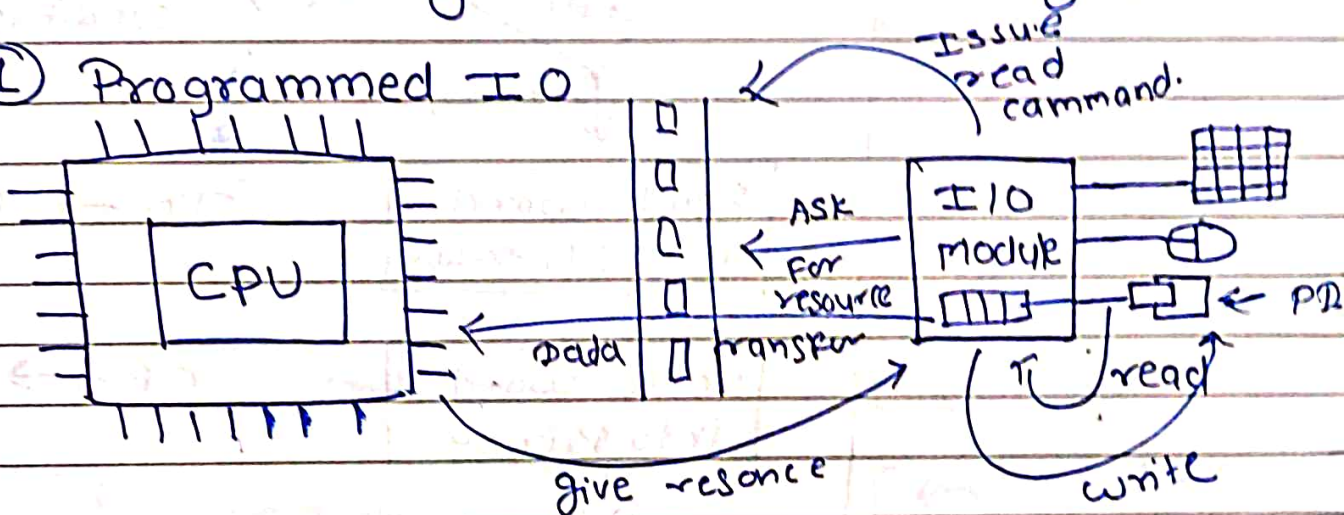 Programmed IO
Issue
read
cammand.
CPU
ASK
For
resource
I/O
module
Dada transfer
read
give resonce
write